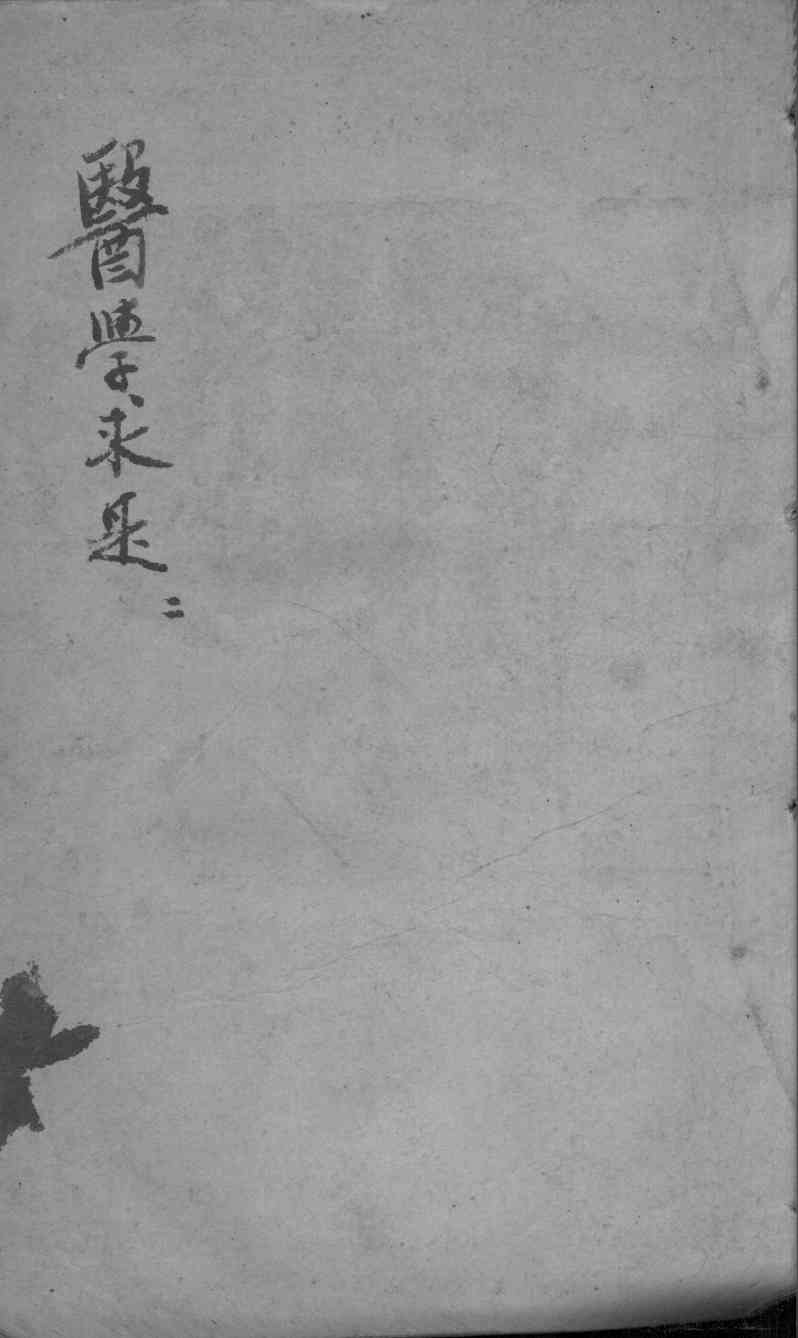 醫學求是二